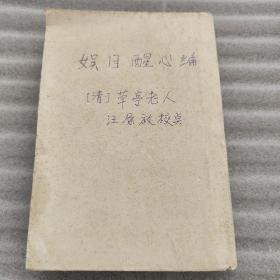 娱目醒心编
[清]草亭老人
汪原放校点